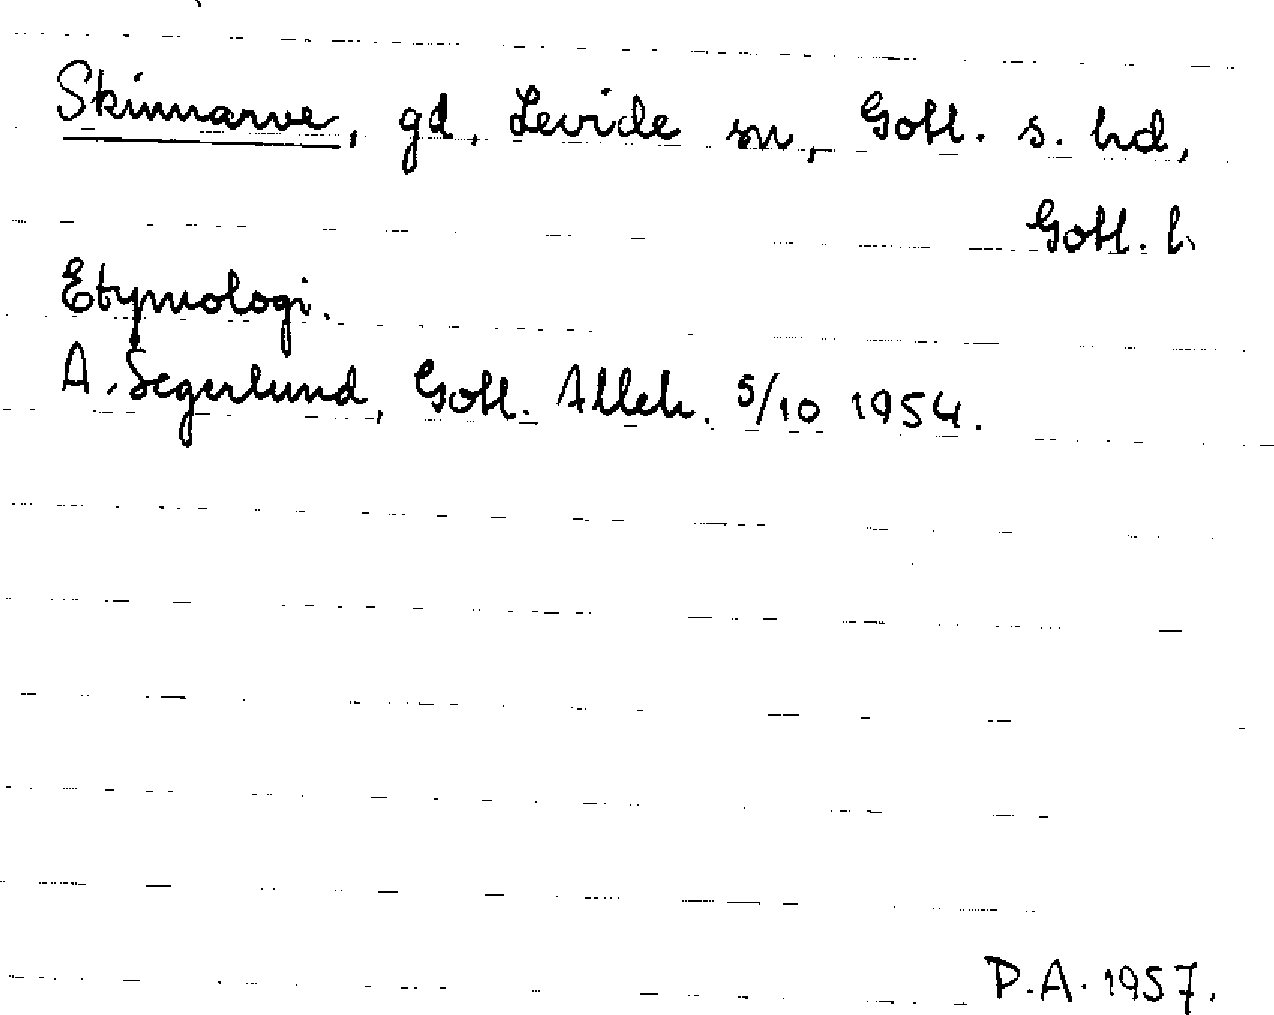 Skinnarve, gd, Levide sn, Gotl. s. hd,
Gotl. l.
Etymologi.
A. Segerlund, Gotl. Alleh. 5/10 1954.
P.A. 1957.